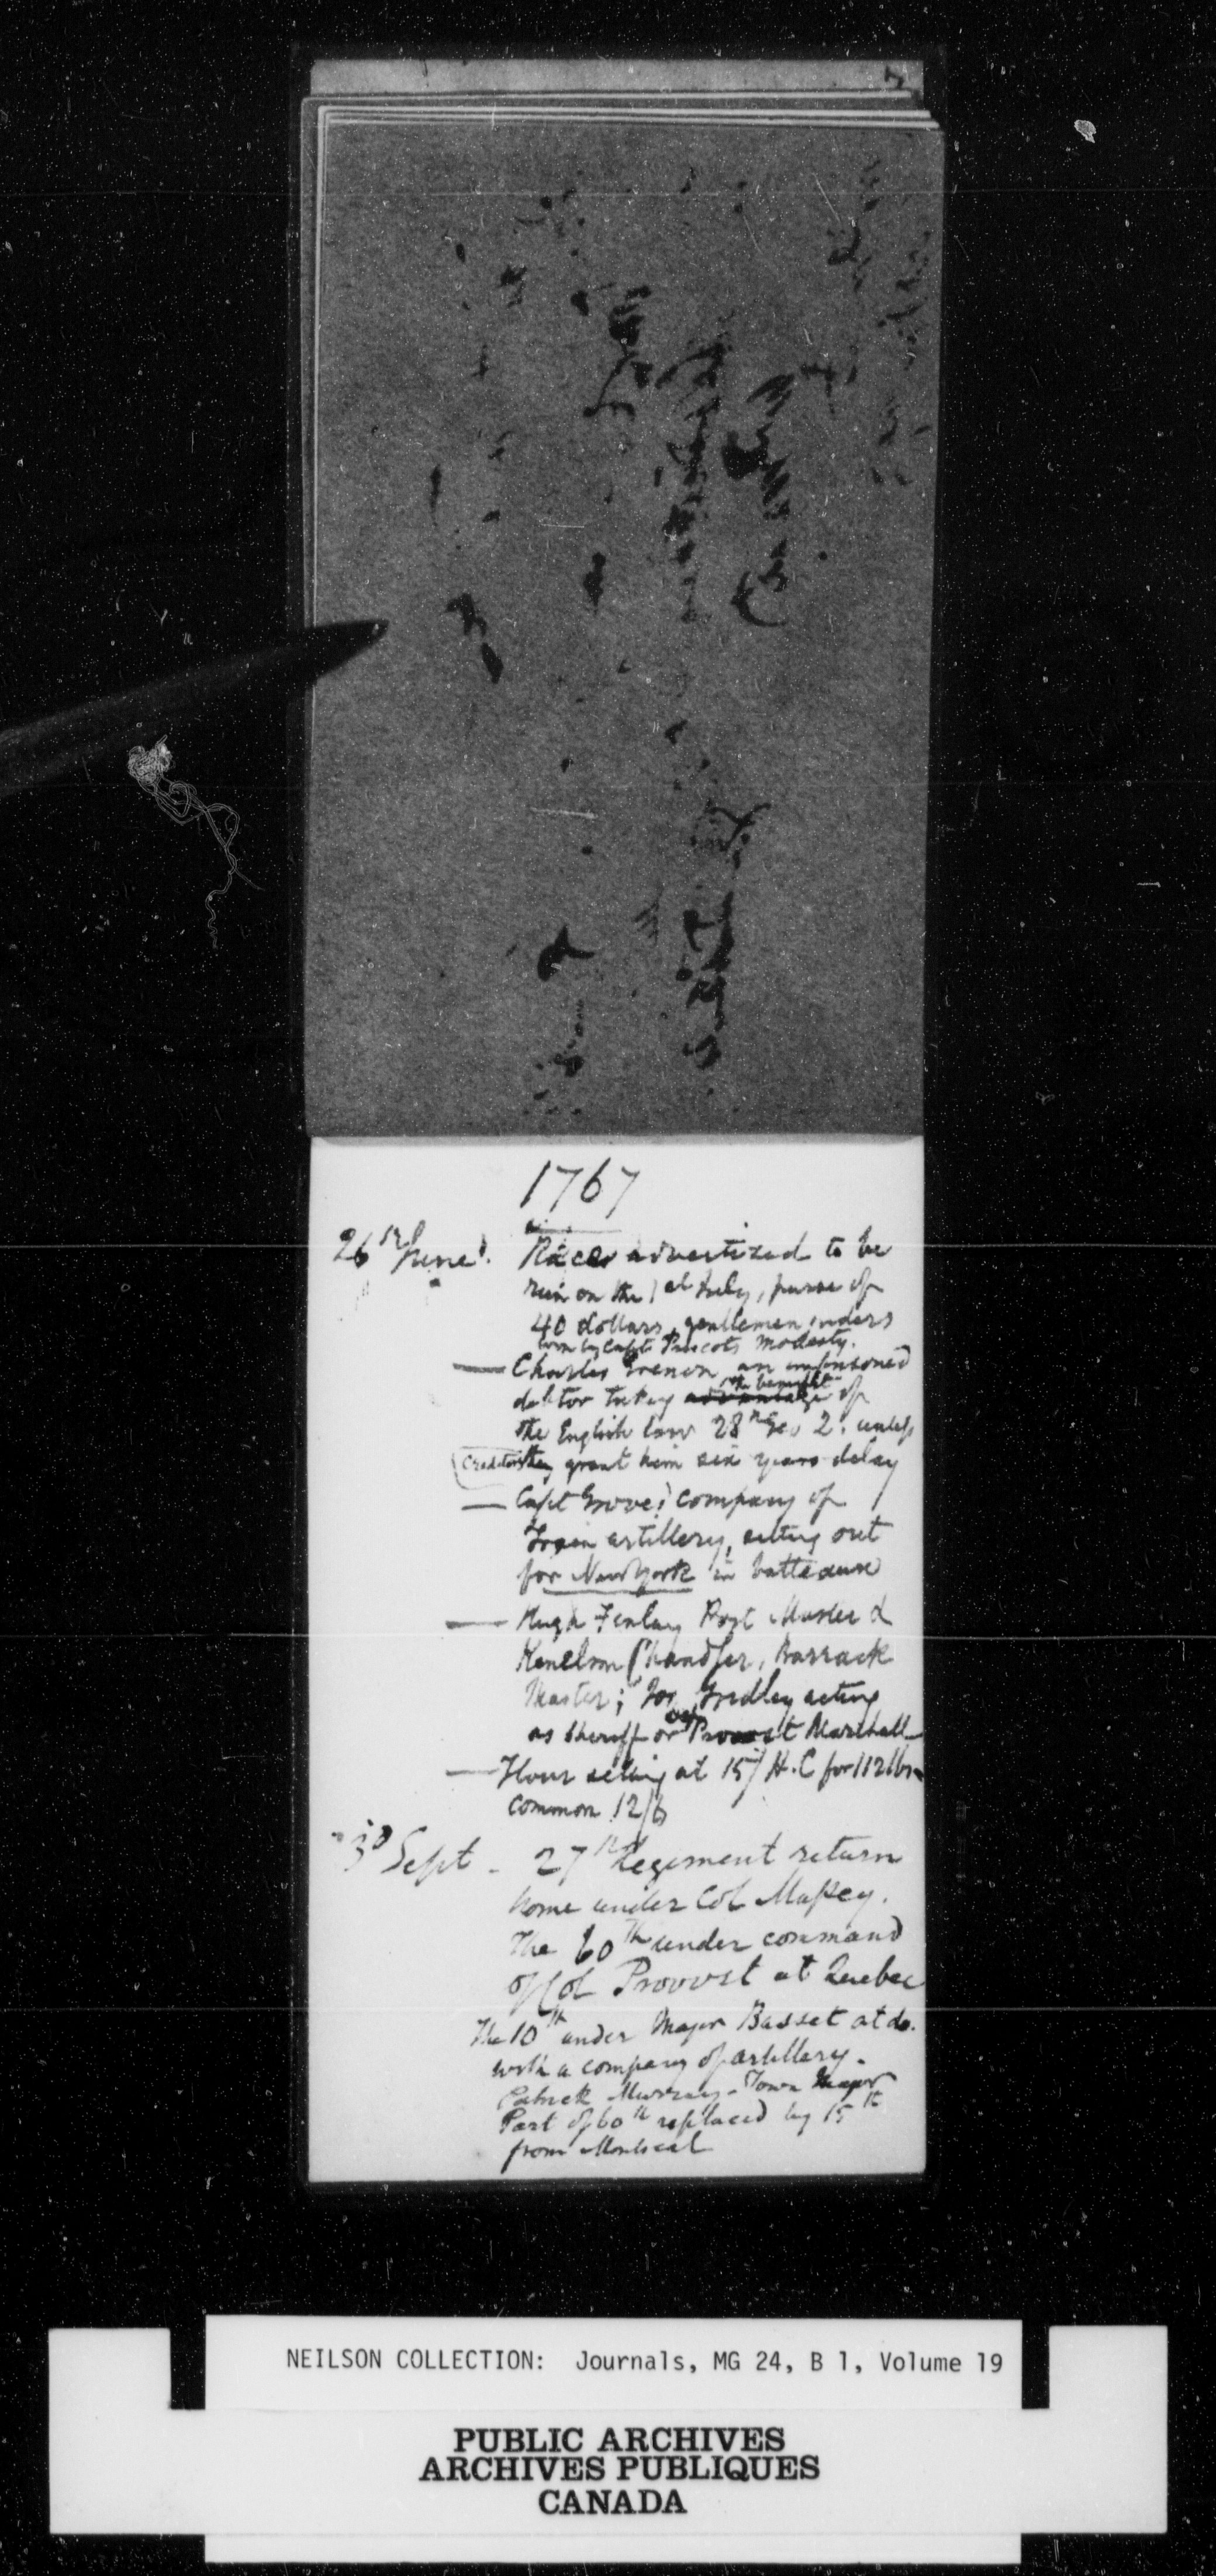 1767
26th June. Races advertized to be
run on the 1st July, purse of
40 dollars, gentlemen riders
won by Capt. Prescots Modesty.
— Charles Grenon an imprisoned
debtor taking advantage the benefit of
the English law 28th Geo 2. unless
(Creditors they grant him six years delay
— Capt Grove's company of
Train artillery, setting out
for New York in batteaux
— Hugh Finlay Post Master &
Kenelm Chandler, Barrack
Master; Jos. Gredley acting
as Sheriff or Provost Marshall
— Flour selling at 15/ H.C for 112 lbs
common 12/6
3d Sept - 27th Regiment return
home under Col Massey.
The 60th under command
of Col Provost at Quebec
The 10th under Major Basset at do.
with a company of artillery.
Patrick Murray - Town Major
Part of 60th replaced by 15th
from Montreal
NEILSON COLLECTION: Journals, MG 24, B 1, Volume 19
PUBLIC ARCHIVES
ARCHIVES PUBLIQUES
CANADA